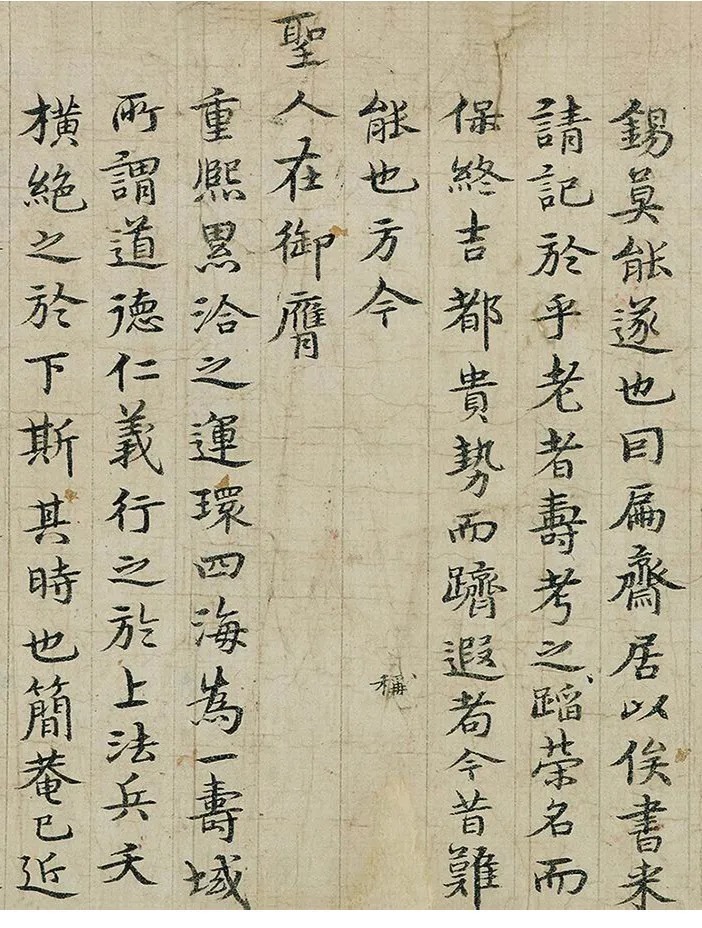 錫莫能遂也曰扁齋居以俟書来
請記於乎老者壽考之蹈榮名而
保終吉都貴勢而躋遐耇今昔難
稱
能也方今
聖人在御膺
重熙累洽之運環四海為一壽域
所謂道德仁義行之於上法兵夭
橫絶之於下斯其時也簡菴已近